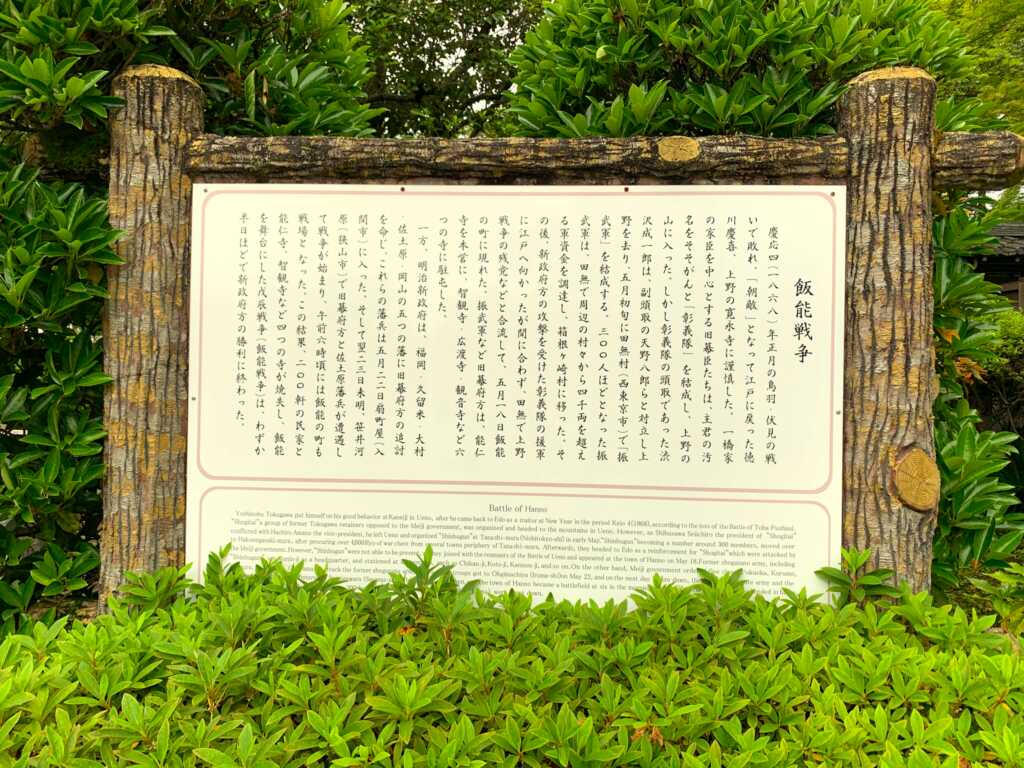 飯能戦争
慶応四(一八六八)年正月の鳥羽・伏見の戦
いで敗れ、「朝敵」となって江戸に戻った徳
川慶喜、上野の寛永寺に謹慎した。一橋家
の家臣を中心とする旧幕臣たちは、主君の汚
名をそそがんと「彰義隊」を結成し、上野の
山に入った。しかし彰義隊の頭取であった渋
沢成一郎は、副頭取の天野八郎らと対立し上
野を去り、五月初旬に田無村(西東京市)で「振
武軍」を結成する。三〇〇人ほどとなった振
武軍は、田無で周辺の村々から四千両を超え
る軍資金を調達し、箱根ヶ崎村に移った。そ
の後、新政府方の攻撃を受けた彰義隊の援軍
に江戸へ向かったが間に合わず、田無で上野
戦争の残党などと合流して、五月一八日飯能
の町に現れた。振武軍など旧幕府方は、能仁
寺を本営に、智観寺・広渡寺・観音寺など六
つの寺に駐屯した。
一方、明治新政府は、福岡・久留米・大村
・佐土原・岡山の五つの藩に旧幕府方の追討
を命じ、これらの藩兵は五月二二日扇町屋(入
間市)に入った。そして翌二三日未明、笹井河
原(狭山市)で旧幕府方と佐土原藩兵が遭遇し
て戦争が始まり、午前六時頃には飯能の町も
戦場となった。この結果、二〇〇軒の民家と
能仁寺、智観寺など四つの寺が焼失し、飯能
を舞台にした戊辰戦争(飯能戦争)は、わずか
半日ほどで新政府方の勝利に終わった。
Battle of Hanno
Yoshinobu Tokugawa put himself on his good behavior at Kaneiji in Ueno, after he came back to Edo as a traitor at New Year in the period Keio 4(1868), according to the loss of the Battle of Toba Fushimi.
"Shogitai" a group of former Tokugawa retainers opposed to the Meiji government, was organized and headed to the mountains in Ueno. However, as Shibusawa Seiichiro the president of "Shogitai"
conflicted with Hachiro Amano the vice-president, he left Ueno and organized "Shinbugun" at Tanashi-mura (Nishitokyo-shi) in early May. "Shinbugun" becoming a number around 300 members, moved over
to Hakonegasaki-mura, after procuring over 4,000Ryo of war chest from several towns periphery of Tanashi-mura. Afterwards, they headed to Edo as a reinforcement for "Shogitai" which were attacked by
the Meiji government. However, "Shinbugun" were not able to be present. They joined with the remnants of the Battle of Ueno and appeared at the town of Hanno on May 18. Former shogunate army, including
a headquarter, and stationed at Chikan-ji, Koto-ji, Kannon-ji, and so on. On the other hand, Meiji government Fukuoka, Kurume,
back the former got to Ohgimachiya (Iruma-shi) on May 22, and on the next day army and the
the town of Hanno became a battlefield at six in the
down.